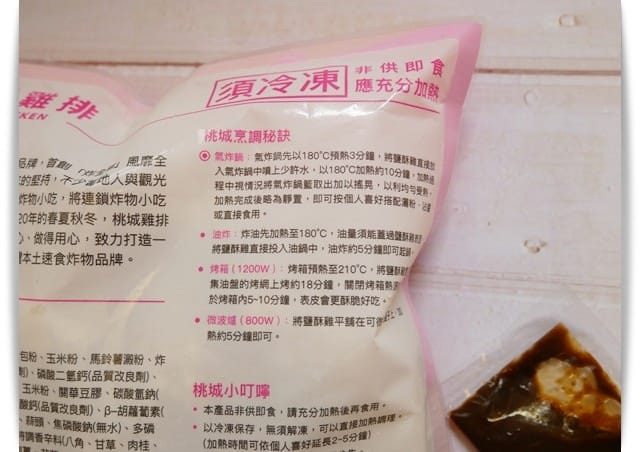 雞排
KEN
須冷凍
非供即食
應充分加熱
桃城烹調秘訣
氣炸鍋：氣炸鍋先以180°C預熱3分鐘，將鹽酥雞直接加
入氣炸鍋中噴上少許水，以180°C加熱約10分鐘，加熱過
程中視情況將氣炸鍋籃取出加以搖晃，以利均勻受熱，
加熱完成後略為靜置，即可按個人喜好搭配灑粉、沾醬
或直接食用。
• 油炸：炸油先加熱至180°C，油量須能蓋過鹽酥雞
將鹽酥雞直接投入油鍋中，油炸約5分鐘即可起鍋
• 烤箱（1200W）：烤箱預熱至210°C，將鹽酥雞
集油盤的烤網上烤約18分鐘，關閉烤箱熱源
於烤箱內5~10分鐘，表皮會更酥脆好吃。
• 微波爐（800W）：將鹽酥雞平舖在可微
熱約5分鐘即可。
桃城小叮嚀
• 本產品非供即食，請充分加熱後再食用。
• 以冷凍保存，無須解凍，可以直接加熱調理。
(加熱時間可依個人喜好延長2~5分鐘)
品牌，首創
風靡全
的堅持，不少
地人與觀光
炸物小吃，將連鎖炸物小吃
20年的春夏秋冬，桃城雞排
心、做得用心，致力打造一
本土速食炸物品牌。
包粉、玉米粉、馬鈴薯澱粉、炸
劑)、磷酸二氫鈣(品質改良劑)、
、玉米粉、關華豆膠、碳酸氫鈉(
酸鈣(品質改良劑)、β-胡蘿蔔素(
、蒜頭、焦磷酸鈉(無水)、多磷
特調香辛料(八角、甘草、肉桂、